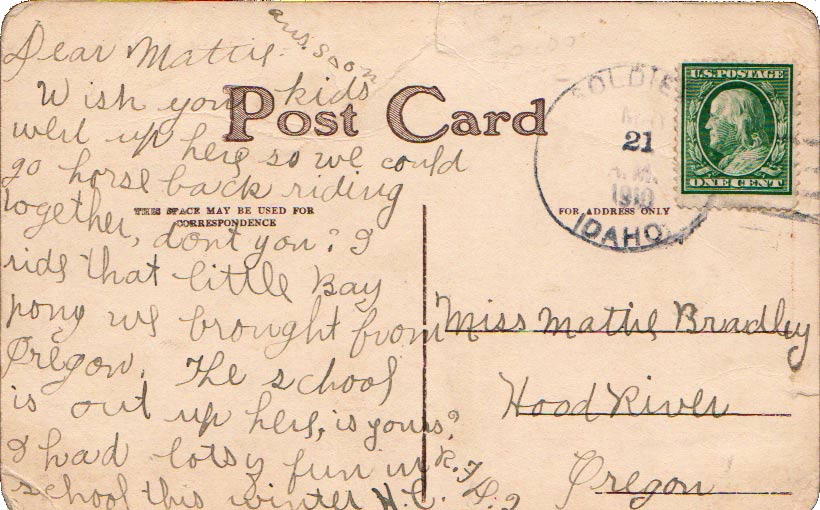 ans. soon
Dear Mattie -
Wish you kids
were up here so we could
go horse back riding
together, dont you? I
ride that little Bay
pony we brought from
Oregon. The school
is out up here, is yours?
I had lotsy fun in
school this winter H.C.
Post Card
THIS SPACE MAY BE USED FOR
CORRESPONDENCE
FOR ADDRESS ONLY
SOLDIE
21
A.M.
1910
IDAHO
U.S. POSTAGE
ONE CENT
Miss Mattie Bradley
Hood River
Oregon
R.F.D. 2